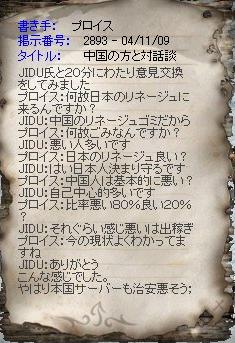 書き手: プロイス
掲示番号: 2893 - 04/11/09
タイトル: 中国の方と対話談
JIDU氏と20分にわたり意見交換
をしてみました
プロイス:何故日本のリネージュに
来るんですか？
JIDU:中国のリネージュゴミだから
プロイス:何故ごみなんですか？
JIDU:悪い人多いです
プロイス:日本のリネージュ良い？
JIDU:はい日本人決まり守るです
プロイス:中国人は基本的に悪い？
JIDU:自己中心的多いです
プロイス:比率悪い80%良い20%
？
JIDU:それぐらい感じ悪いは出稼ぎ
プロイス:今の現状よくわかってま
すね
JIDU:ありがとう
こんな感じでした。
やはり本国サーバーも治安悪そう;